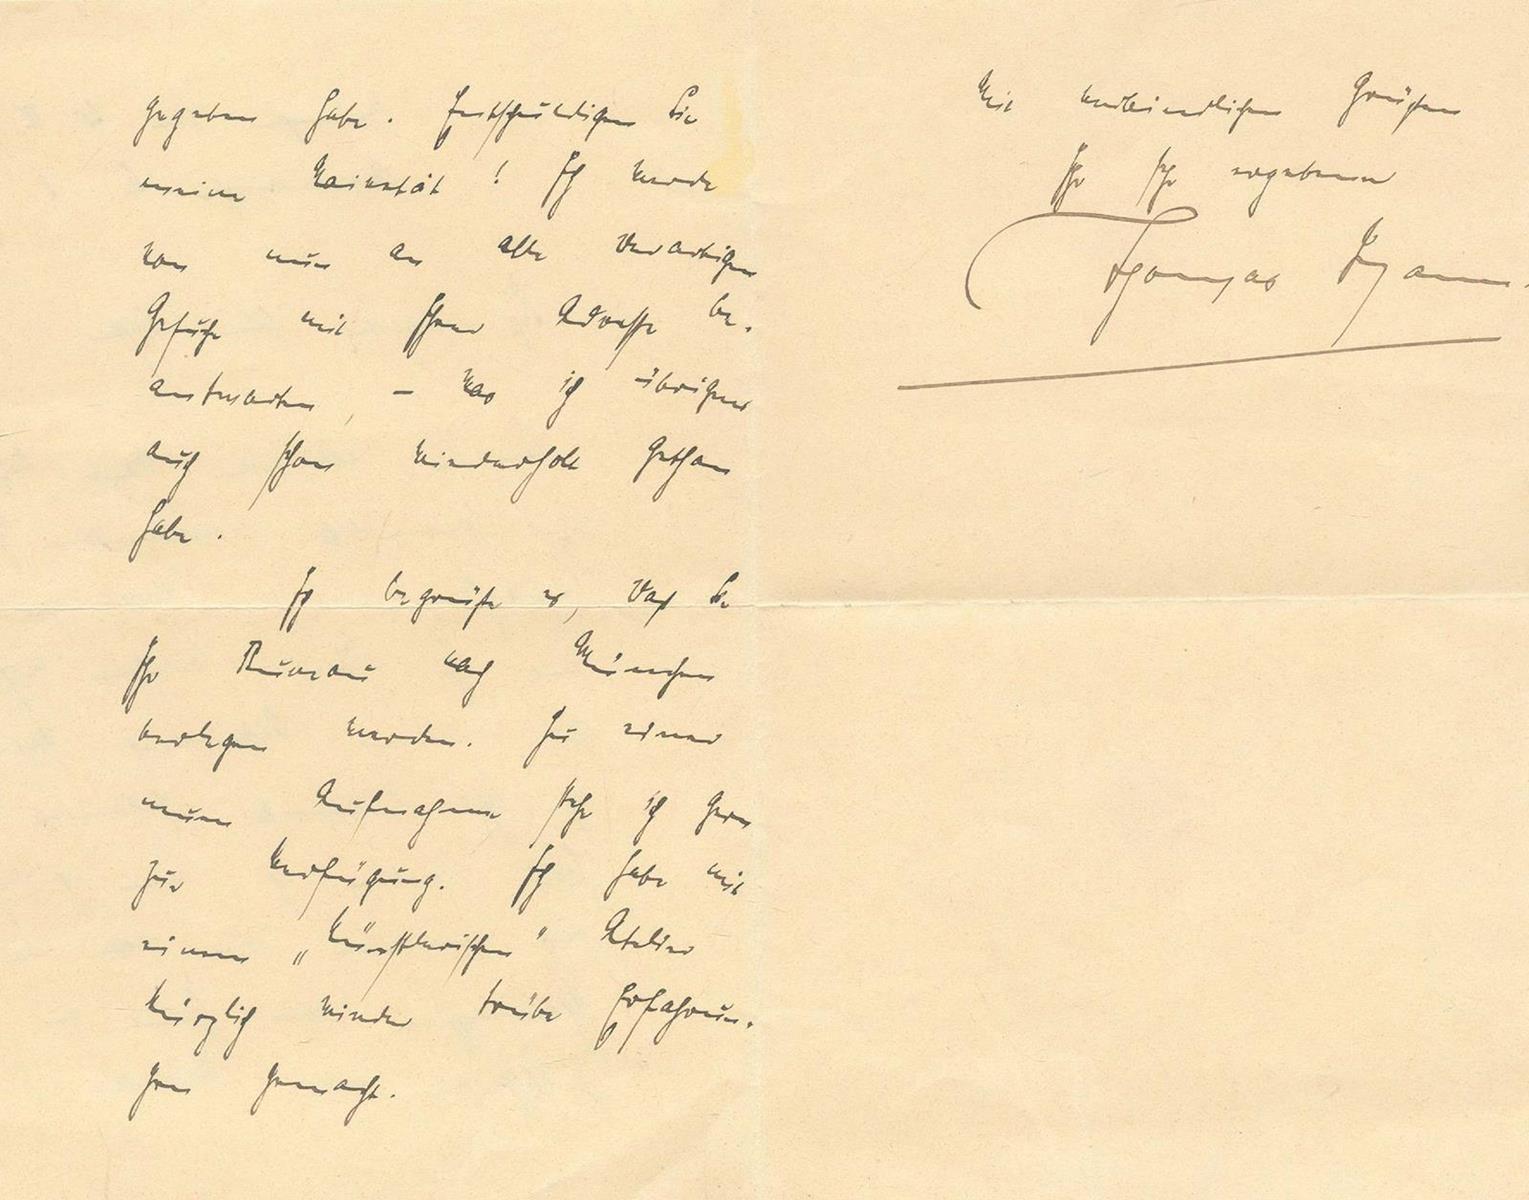 gegeben habe. Entschuldigen Sie
meine Naivetät! Ich werde
von nun an alle derartigen
Gesuche mit Ihrer Adresse be-
antworten, – was ich übrigens
auch schon wiederholt gethan
habe.
Ich begrüße es, daß Sie
Ihr Bureau nach München
verlegen werden. Zu einer
neuen Aufnahme stehe ich gern
zur Verfügung. Ich habe mit
einem „künstlerischen" Atelier
kürzlich wieder trübe Erfahrun-
gen gemacht.
Mit verbindlichen Grüßen
Ihr sehr ergebener
Thomas Mann.